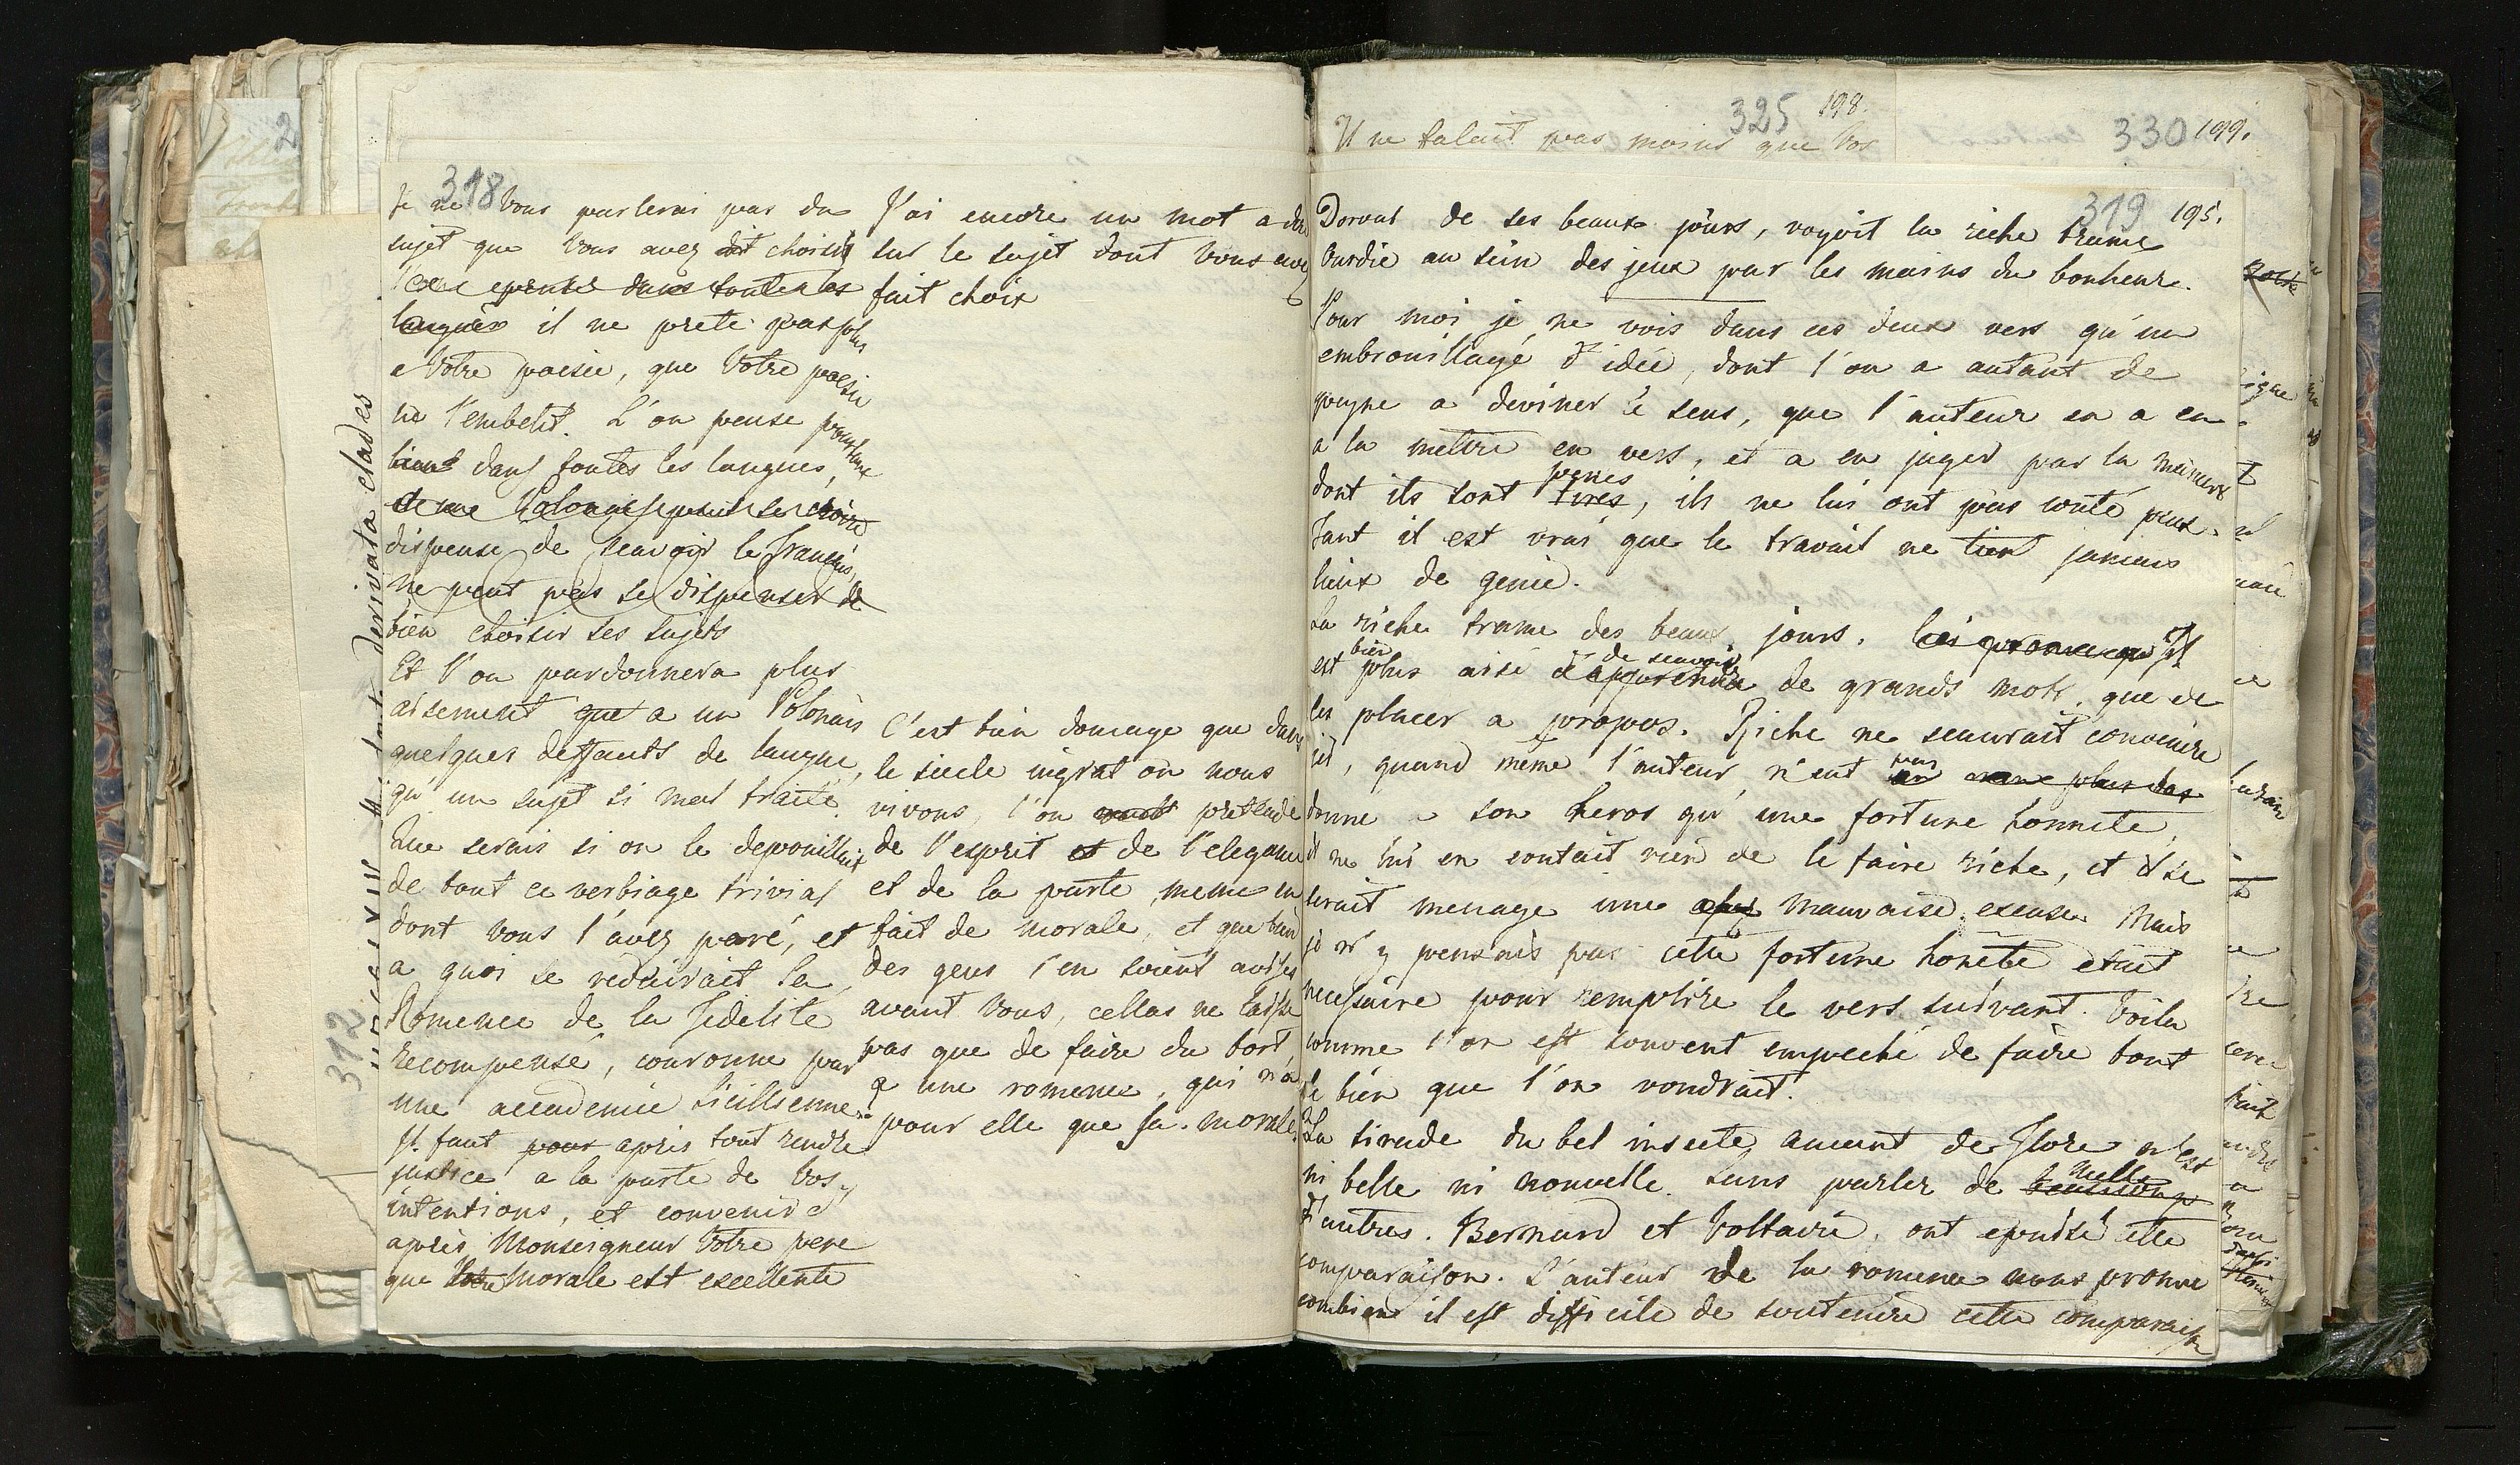 318
Je ne Vous parlerai pas du
sujet que Vous avez dit choisit
dans toutes les
langues il ne prete pas plus
a Votre poesie, que Votre poesie
ne l'embelit. L'on pense pourtant
bien dans toutes les langues,
dispense de scavoir le Francais,
ne peut pas se dispenser de
bien choisir ses sujets
Et l'on pardonnera plus
aisement que a un Polonais
quelques deffauts de langue,
qu'un sujet si mal traité.
Que serais si on le depouillait
de tout ce verbiage trivial
dont vous l'avez paré, et
a quoi se reduirait la
Romence de la Fidelite
recompensé, couronne par
une accademie Sicillienne.
Il faut pour apres tout rendre
justice a la purte de Vos
intentions, et convenir
après Monseigneur Votre pere
que Votre Morale est excellente
J'ai encore un mot a dire
sur le sujet dont Vous avez
fait choix
C'est bien domage que dans
le siecle ingrat ou nous
vivons, l'on veut pretende
de l'esprit et de l'elegance
et de la purte, meme en
fait de morale, et que bien
des gens s'en soient avises
avant Vous, cellas ne laisse
pas que de faire du tort,
a une romence, qui n'a
pour elle que sa morale.
derivata clades
312
325 198.
Il ne falait pas moins que Vos
330 199.
319 195.
Dorval de ses beaux jours, voyoit la riche trame
Ourdie au sein des jeux par les mains du bonheur.
Pour moi je ne vois dans ces deux vers qu'un
embrouillagé d'idée, dont l'on a autant de
peyne a deviner le sens, que l'auteur en a eu
a la mettre en vers, et a en juger par la maniere
dont ils sont tires, ils ne lui ont pas couté peux.
Tant il est vrai que le travail ne tient jamais
lieux de genie.
La riche trame des beaux jours. Il
est bien plus aisé d'apprendre de scavoir de grands mots, que de
les placer a propos. Riche ne scaurait convenir
ici, quand même l'auteur n'eut pas
donne a son heros qu'une fortune honnete,
il ne lui en coutait rien de le faire riche, et il se
serait menage une mauvaise excuse. Mais
je n'y pensais pas cette fortune honete etait
necessaire pour remplire le vers suivant. Voila
comme l'on est souvent empeché de faire tout
le bien que l'on voudrait.
La tirade du bel insecte amant de Flore n'est
ni belle ni nouvelle. Sans parler de mille
d'autres. Bernard et Voltaire, ont epuisé cette
comparaison. L'auteur de la romence nous prouve
combien il est difficile de soutenir cette comparaison